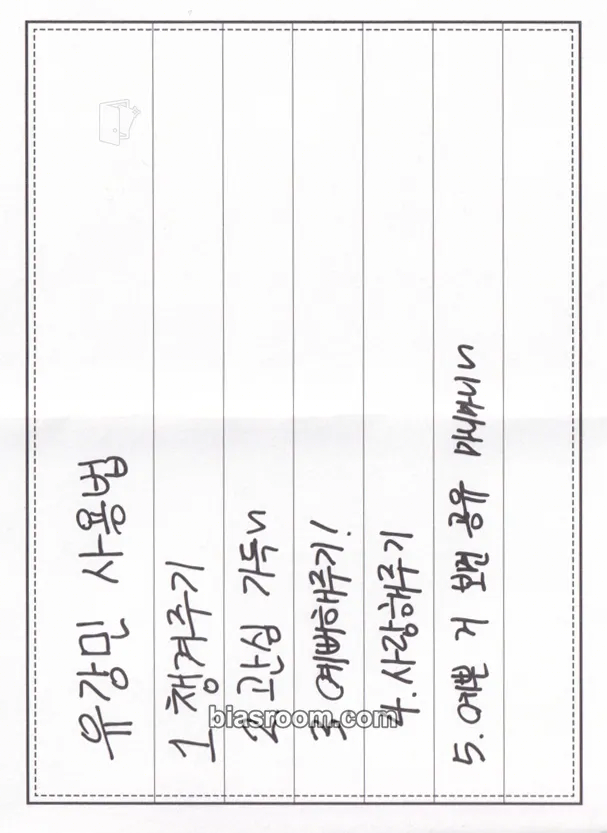 유강민 사용법
1. 챙겨주기
2. 관심 가득~
3. 예뻐해주기!
4. 사랑해주기
5. 예쁜 거 보면 공유
biasroom.com